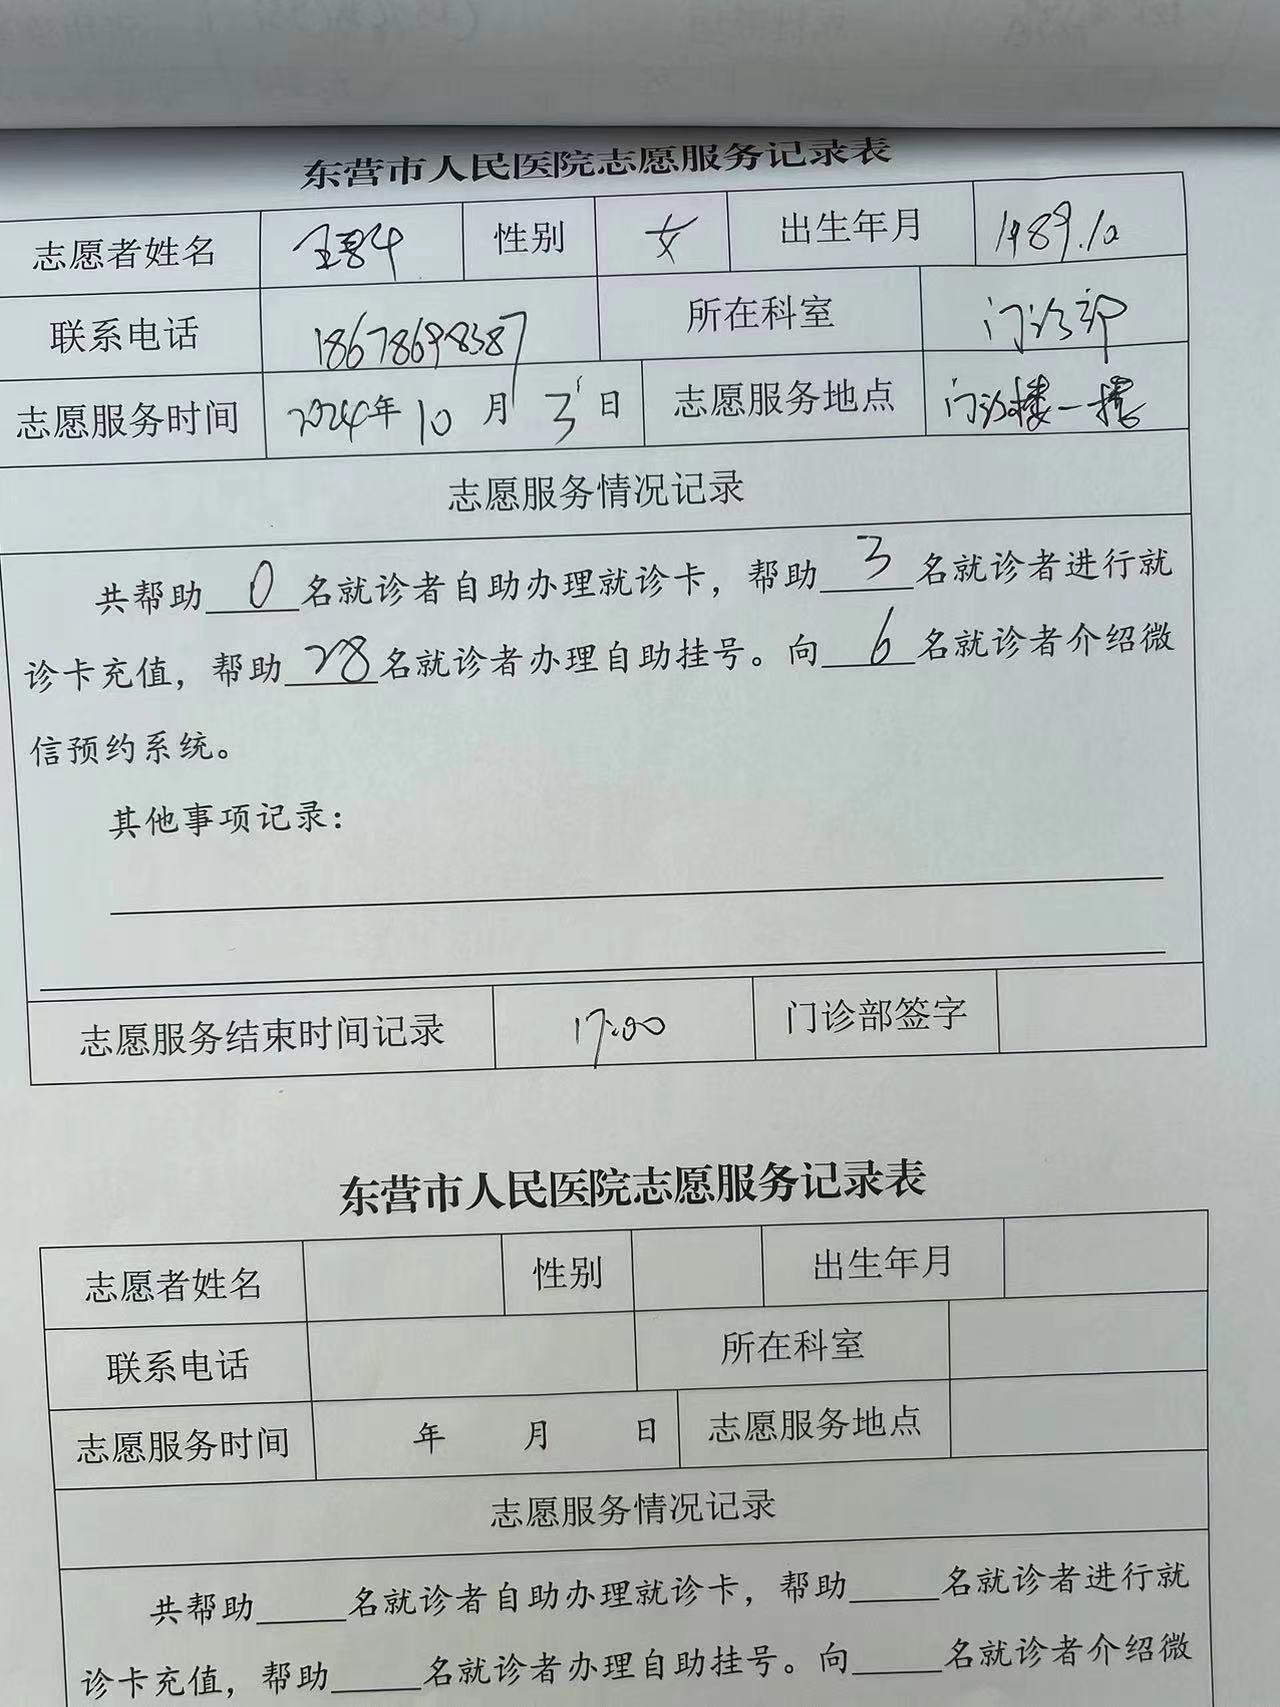 东营市人民医院志愿服务记录表
志愿者姓名 性别 女 出生年月 1989.10
联系电话 18678698387 所在科室 门诊部
志愿服务时间 2024年 10 月 3 日 志愿服务地点 门诊楼一楼
志愿服务情况记录
共帮助 0 名就诊者自助办理就诊卡，帮助 3 名就诊者进行就
诊卡充值，帮助 28 名就诊者办理自助挂号。向 6 名就诊者介绍微
信预约系统。
其他事项记录：
志愿服务结束时间记录 17:00 门诊部签字
东营市人民医院志愿服务记录表
志愿者姓名 性别 出生年月
联系电话 所在科室
志愿服务时间 年 月 日 志愿服务地点
志愿服务情况记录
共帮助____名就诊者自助办理就诊卡，帮助____名就诊者进行就
诊卡充值，帮助____名就诊者办理自助挂号。向____名就诊者介绍微